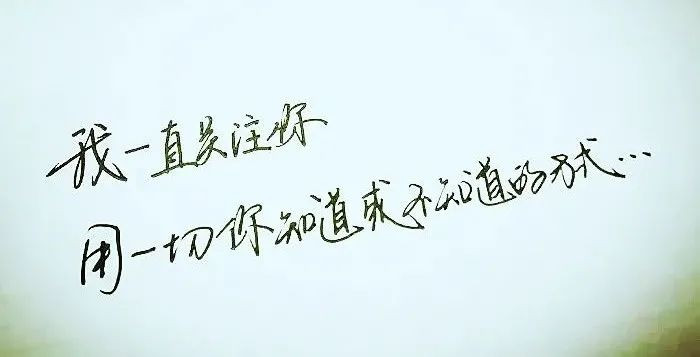 我一直关注你
用一切你知道或不知道的方式…